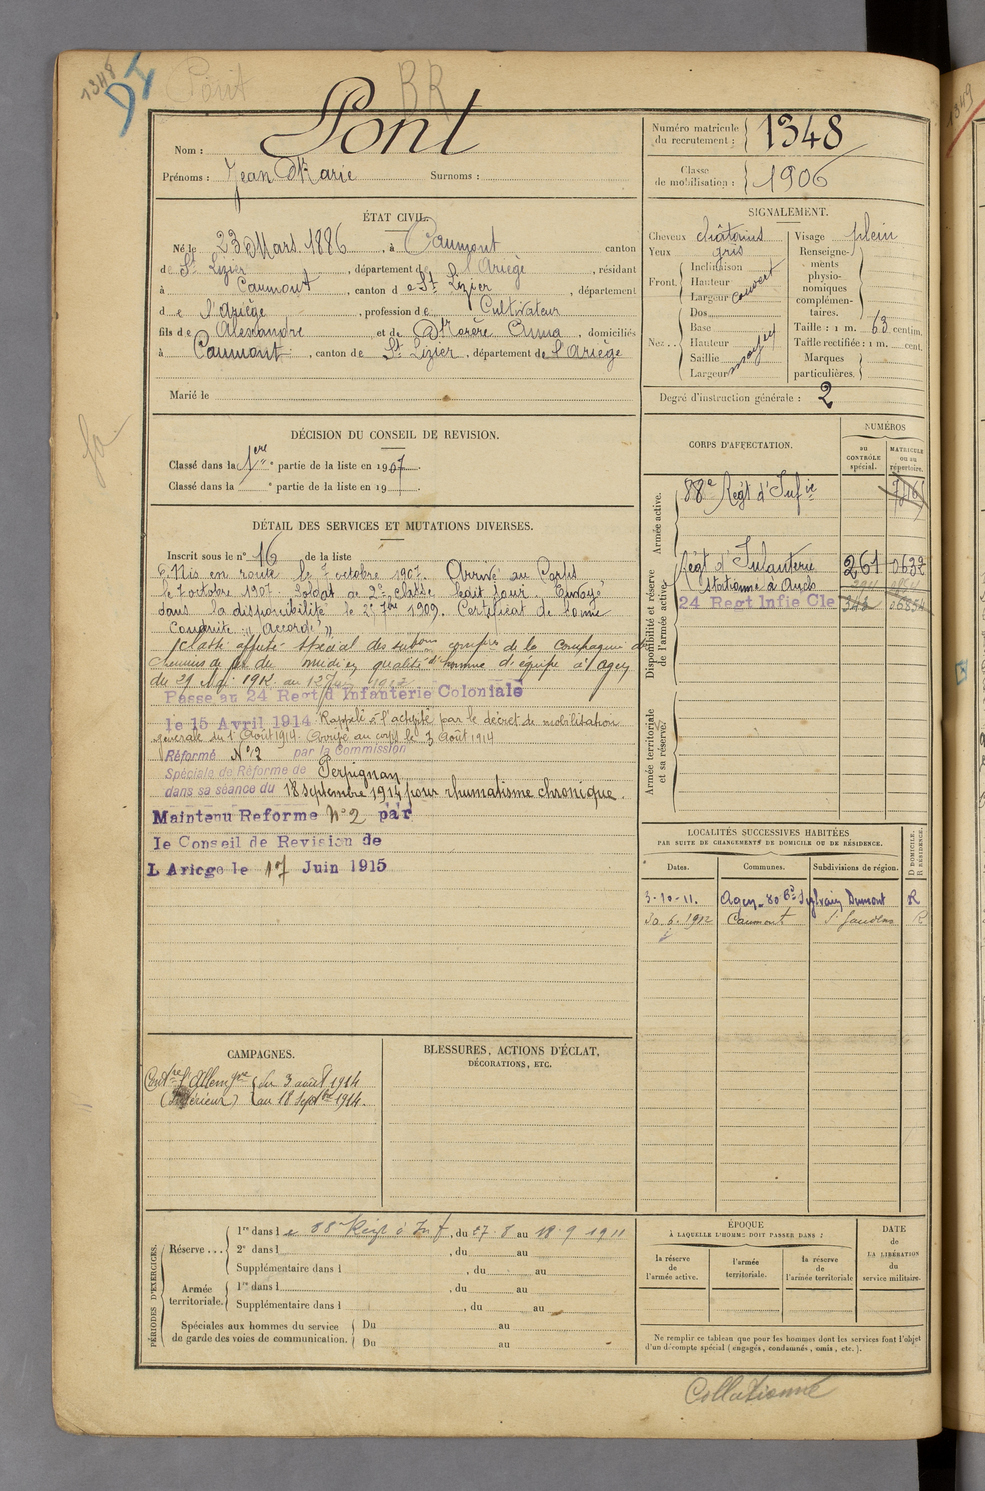 1348
Pont
BR
Nom : Pont
Prénoms : Jean Marie Surnoms :
Numéro matricule du recrutement : 1348
Classe de mobilisation : 1906
ÉTAT CIVIL.
Né le 23 Mars 1886, à Caumont canton
de St Lizier, département de l'Ariège, résidant
à Caumont, canton de St Lizier, département
de l'Ariège, profession de Cultivateur
fils de Alexandre et de Anna, domiciliés
à Caumont, canton de St Lizier, département de l'Ariège
Marié le
SIGNALEMENT.
Cheveux châtains
Yeux gris
Front. Inclinaison
Hauteur
Largeur couvert
Nez. Dos
Base
Hauteur
Saillie
Largeur moyen
Visage plein
Renseignements physionomiques complémentaires.
Taille : 1 m. 63 centim.
Taille rectifiée : 1 m. cent.
Marques particulières.
Degré d'instruction générale : 2
DÉCISION DU CONSEIL DE REVISION.
Classé dans la 1ere partie de la liste en 1907.
Classé dans la e partie de la liste en 19
DÉTAIL DES SERVICES ET MUTATIONS DIVERSES.
Inscrit sous le n° 16 de la liste
Mis en route le octobre 1907. Arrivé au Corps
le 7 octobre 1907. Soldat de 2e classe ledit jour. Envoyé
dans la disponibilité le 1909. Certificat de bonne
Conduite "Accordé"
Classé affecté spécial des subons complres de la compagnie des
chemins de fer du midi en qualité d'homme d'équipe à Agen
du 29 1912 au 12 1912
Passé au 24 Regt d Infanterie Coloniale
le 15 Avril 1914 Rappelé à l'activité par le décret de mobilisation
générale du 1er Août 1914. Arrivé au corps le 3 Août 1914
Réformé N° 2 par la Commission
Spéciale de Réforme de Perpignan
dans sa séance du 18 septembre 1914 pour rhumatisme chronique.
Maintenu Reforme N° 2 par
le Conseil de Revision de
L Ariege le 17 Juin 1915
CORPS D'AFFECTATION.
NUMÉROS
AU CONTRÔLE spécial.
MATRICULE ou au répertoire.
Armée active.
88e Régt d'Infie
Disponibilité et réserve de l'armée active.
Régt d'Infanterie 261 0632
Stationné à Auch
24 Regt Infie Cle
Armée territoriale et sa réserve.
LOCALITÉS SUCCESSIVES HABITÉES
PAR SUITE DE CHANGEMENTS DE DOMICILE OU DE RÉSIDENCE.
Dates. Communes. Subdivisions de région. D DOMICILE. R RÉSIDENCE.
3-10-11. Agen - 80 Bd Sylvain Dumont R
30.6.1912 Caumont St Gaudens R
CAMPAGNES.
Contre l'Allemgne du 3 août 1914
(Intérieur) au 18 Septbre 1914.
BLESSURES, ACTIONS D'ÉCLAT,
DÉCORATIONS, ETC.
PÉRIODES D'EXERCICES.
Réserve... 1re dans le 88e Régt d'Inf, du 27.8 au 18.9 1911
2e dans l , du au
Supplémentaire dans l , du au
Armée territoriale. 1re dans l , du au
Supplémentaire dans l , du au
Spéciales aux hommes du service de garde des voies de communication. Du au
Du au
ÉPOQUE
À LAQUELLE L'HOMME DOIT PASSER DANS :
la réserve de l'armée active.
l'armée territoriale.
la réserve de l'armée territoriale
DATE
de
LA LIBÉRATION
du
service militaire.
Ne remplir ce tableau que pour les hommes dont les services font l'objet
d'un décompte spécial (engagés, condamnés, omis, etc.).
Collationné
1349